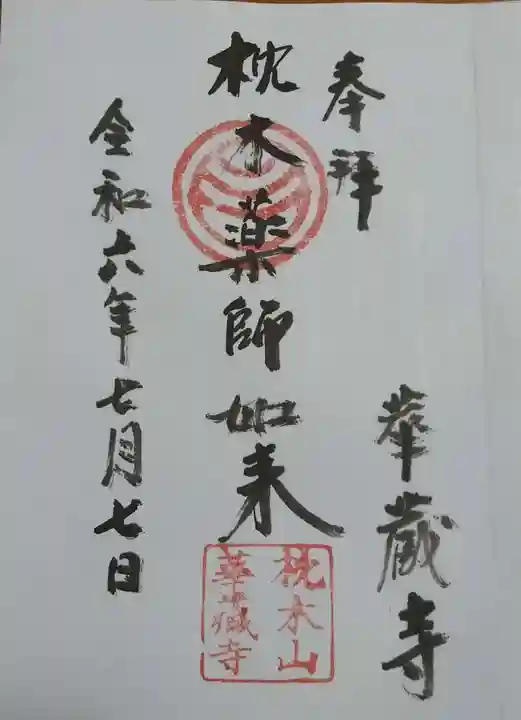 奉拜
華蔵寺
枕木薬師如来
令和六年七月七日
枕木山
華蔵寺